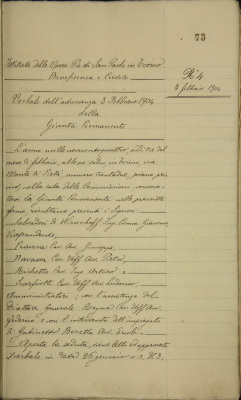 73
Istituto delle Opere Pie di San Paolo in Torino
Beneficenza e Credito
N. 4
3 febbraio 1904
Verbale dell'adunanza 3 Febbraio 1904
della
Giunta Permanente
L'anno millenovecentoquattro, addì tre del
mese di febbraio, alle ore dieci, in Torino, via
Monte di Pietà, numero trentadue, piano pri
mo, nella sala delle Commissioni, convoca
tasi la Giunta Permanente nelle prescritte
forme, risultano presenti i Signori:
Salvadori di Wiesenhoff Ing. Conte Giacomo
Vicepresidente,
Cav. Avv. Giuseppe,
Cav. Uff. Avv. Pietro,
Cav. Ing. e
Cav. Uff. Avv.
Amministratori; con l'assistenza del
Direttore Generale Cav. Uff. Avv.
Federico e con l'intervento dell'impiegato
di Gabinetto Beretta Avv.
Aperta la seduta, viene letto ed approvato
il verbale in data 26 gennaio u. s. N. 3.